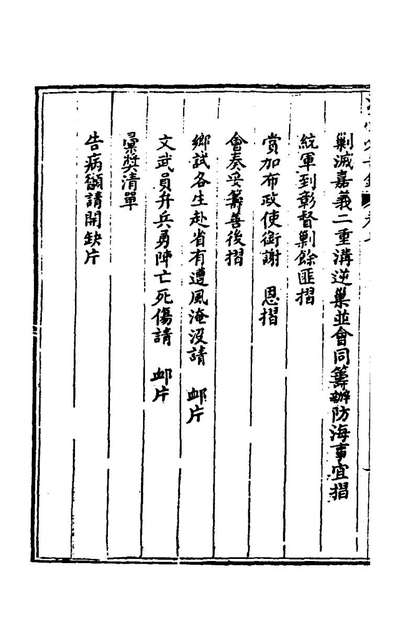 剿滅嘉義二重溝逆巢並會同籌辦防海事宜摺
統軍到彰督剿餘匪摺
賞加布政使銜謝　恩摺
會奏妥籌善後摺
鄉試各生赴省有遭風淹沒請　卹片
文武員弁兵勇陣亡死傷請　卹片
彙獎清單
告病籲請開缺片